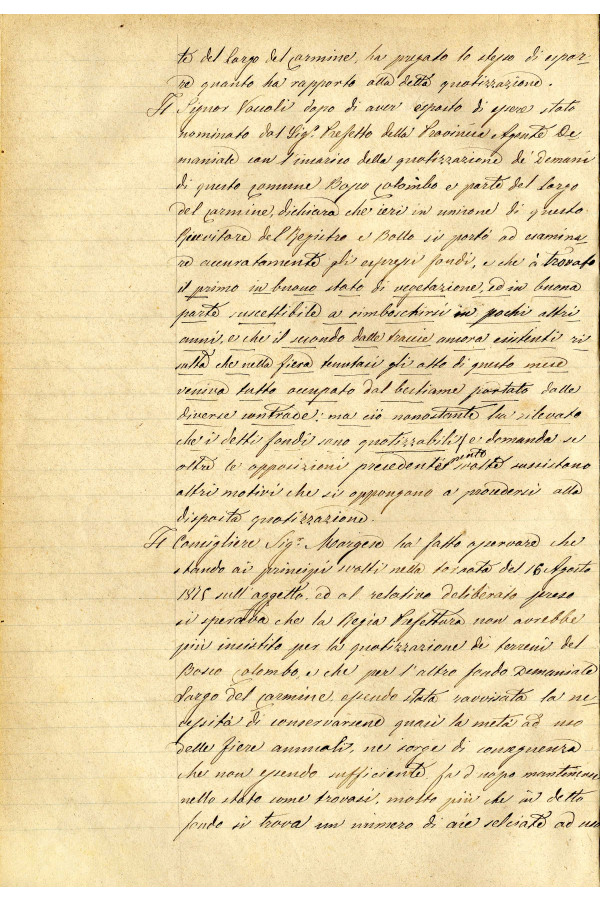 te del largo del Carmine, ha pregato lo stesso di espor-
re quanto ha rapporto alla detta quotizzazione.
Il Signor Vascoli dopo di aver esposto di essere stato
nominato dal Sig.r Prefetto della Provincia Agente De-
maniale con l'incarico della quotizzazione de' Demani
di questo Comune Bosco Colombo e parte del Largo
del Carmine, dichiara che ieri in unione di questo
Ricevitore del Registro e Bollo si portò ad esamina-
re accuratamente gli espressi fondi, e che à trovato
il primo in buono stato di vegetazione, ed in buona
parte suscettibile a rimboschirsi in pochi altri
anni, e che il secondo dalle traccie ancora esistenti ri
sulta che nella fiera tenutasi gli otto di questo mese
veniva tutto occupato dal bestiame portato dalle
diverse contrade; ma ciò nonostante ha rilevato
che i detti fondi sono quotizzabili, e domanda se
oltre le opposizioni precedentemente svolte sussistano
altri motivi che si oppongano a procedersi alla
disposta quotizzazione.
Il Consigliere Sig.r Margese ha fatto osservare che
stando ai principii svolti nella tornata del 16 Agosto
1875 sull'oggetto, ed al relativo deliberato preso
si sperava che la Regia Prefettura non avrebbe
più insistito per la quotizzazione di terreni del
Bosco Colombo, e che per l'altro fondo Demaniale
Largo del Carmine, essendo stata ravvisata la ne-
cessità di conservarsene quasi la metà ad uso
delle fiere annuali, ne sorge di conseguenza
che non essendo sufficiente, fa d'uopo mantenersi
nello stato come trovasi, molto più che in detto
fondo si trova un numero di aie selciate ad uso